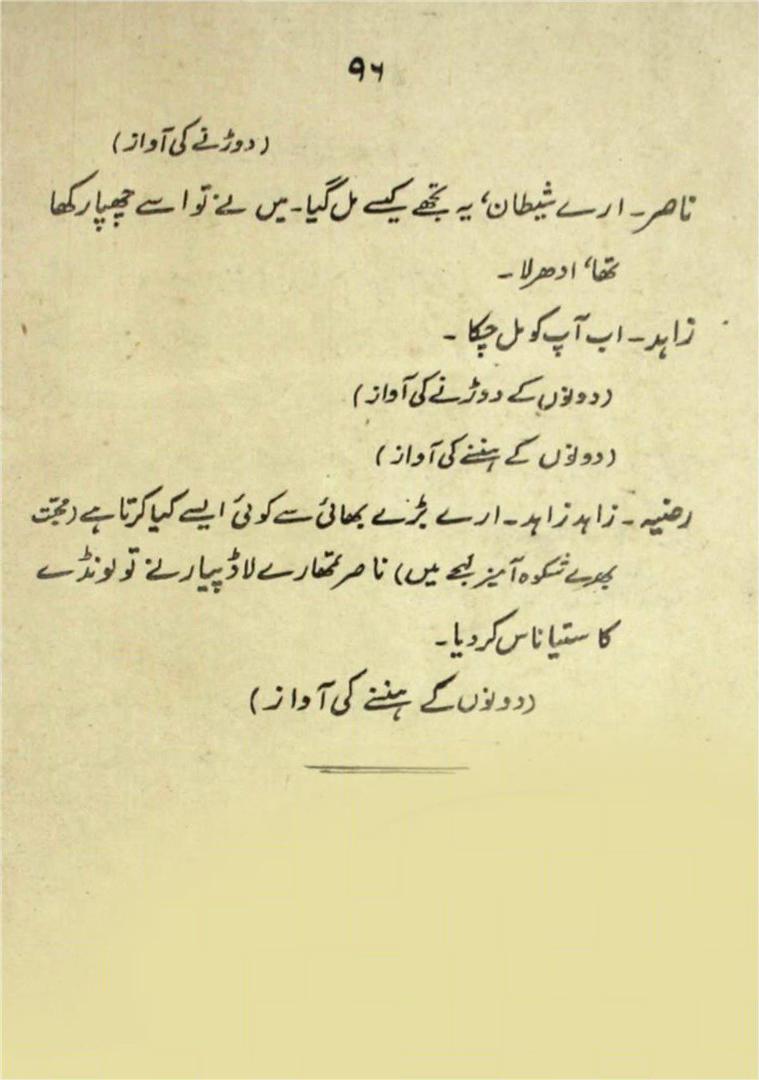 ۹۶
(دوڑنے کی آواز)
ناصر۔ ارے شیطان، یہ تجھے کیسے مل گیا۔ میں نے تو اسے چھپا رکھا
تھا، ادھر لا۔
زاہد۔ اب آپ کو مل چکا۔
(دونوں کے دوڑنے کی آواز)
(دونوں کے ہنسنے کی آواز)
رضیہ۔ زاہد زاہد۔ ارے بڑے بھائی سے کوئی ایسے کیا کرتا ہے (محبت
بھرے شکوہ آمیز لہجے میں) ناصر تمھارے لاڈ پیار نے تو لونڈے
کا ستیا ناس کر دیا۔
(دونوں کے ہنسنے کی آواز)